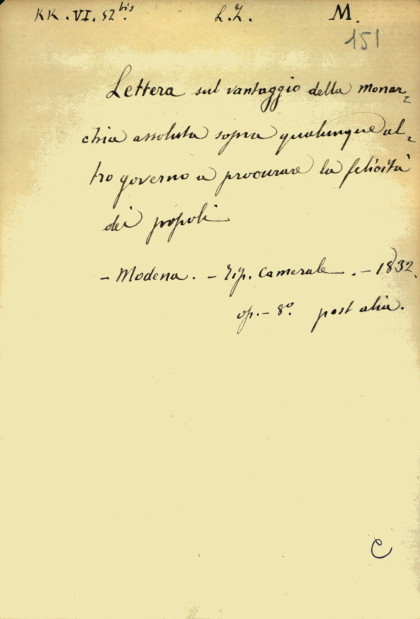 KK. VI. 52 bis. L. Z. M.
151
Lettera sul vantaggio della monar-
chia assoluta sopra qualunque al-
tro governo a procurare la felicità
dei popoli
- Modena. - Tip. Camerale. - 1832.
op. - 8º. post alia.
C